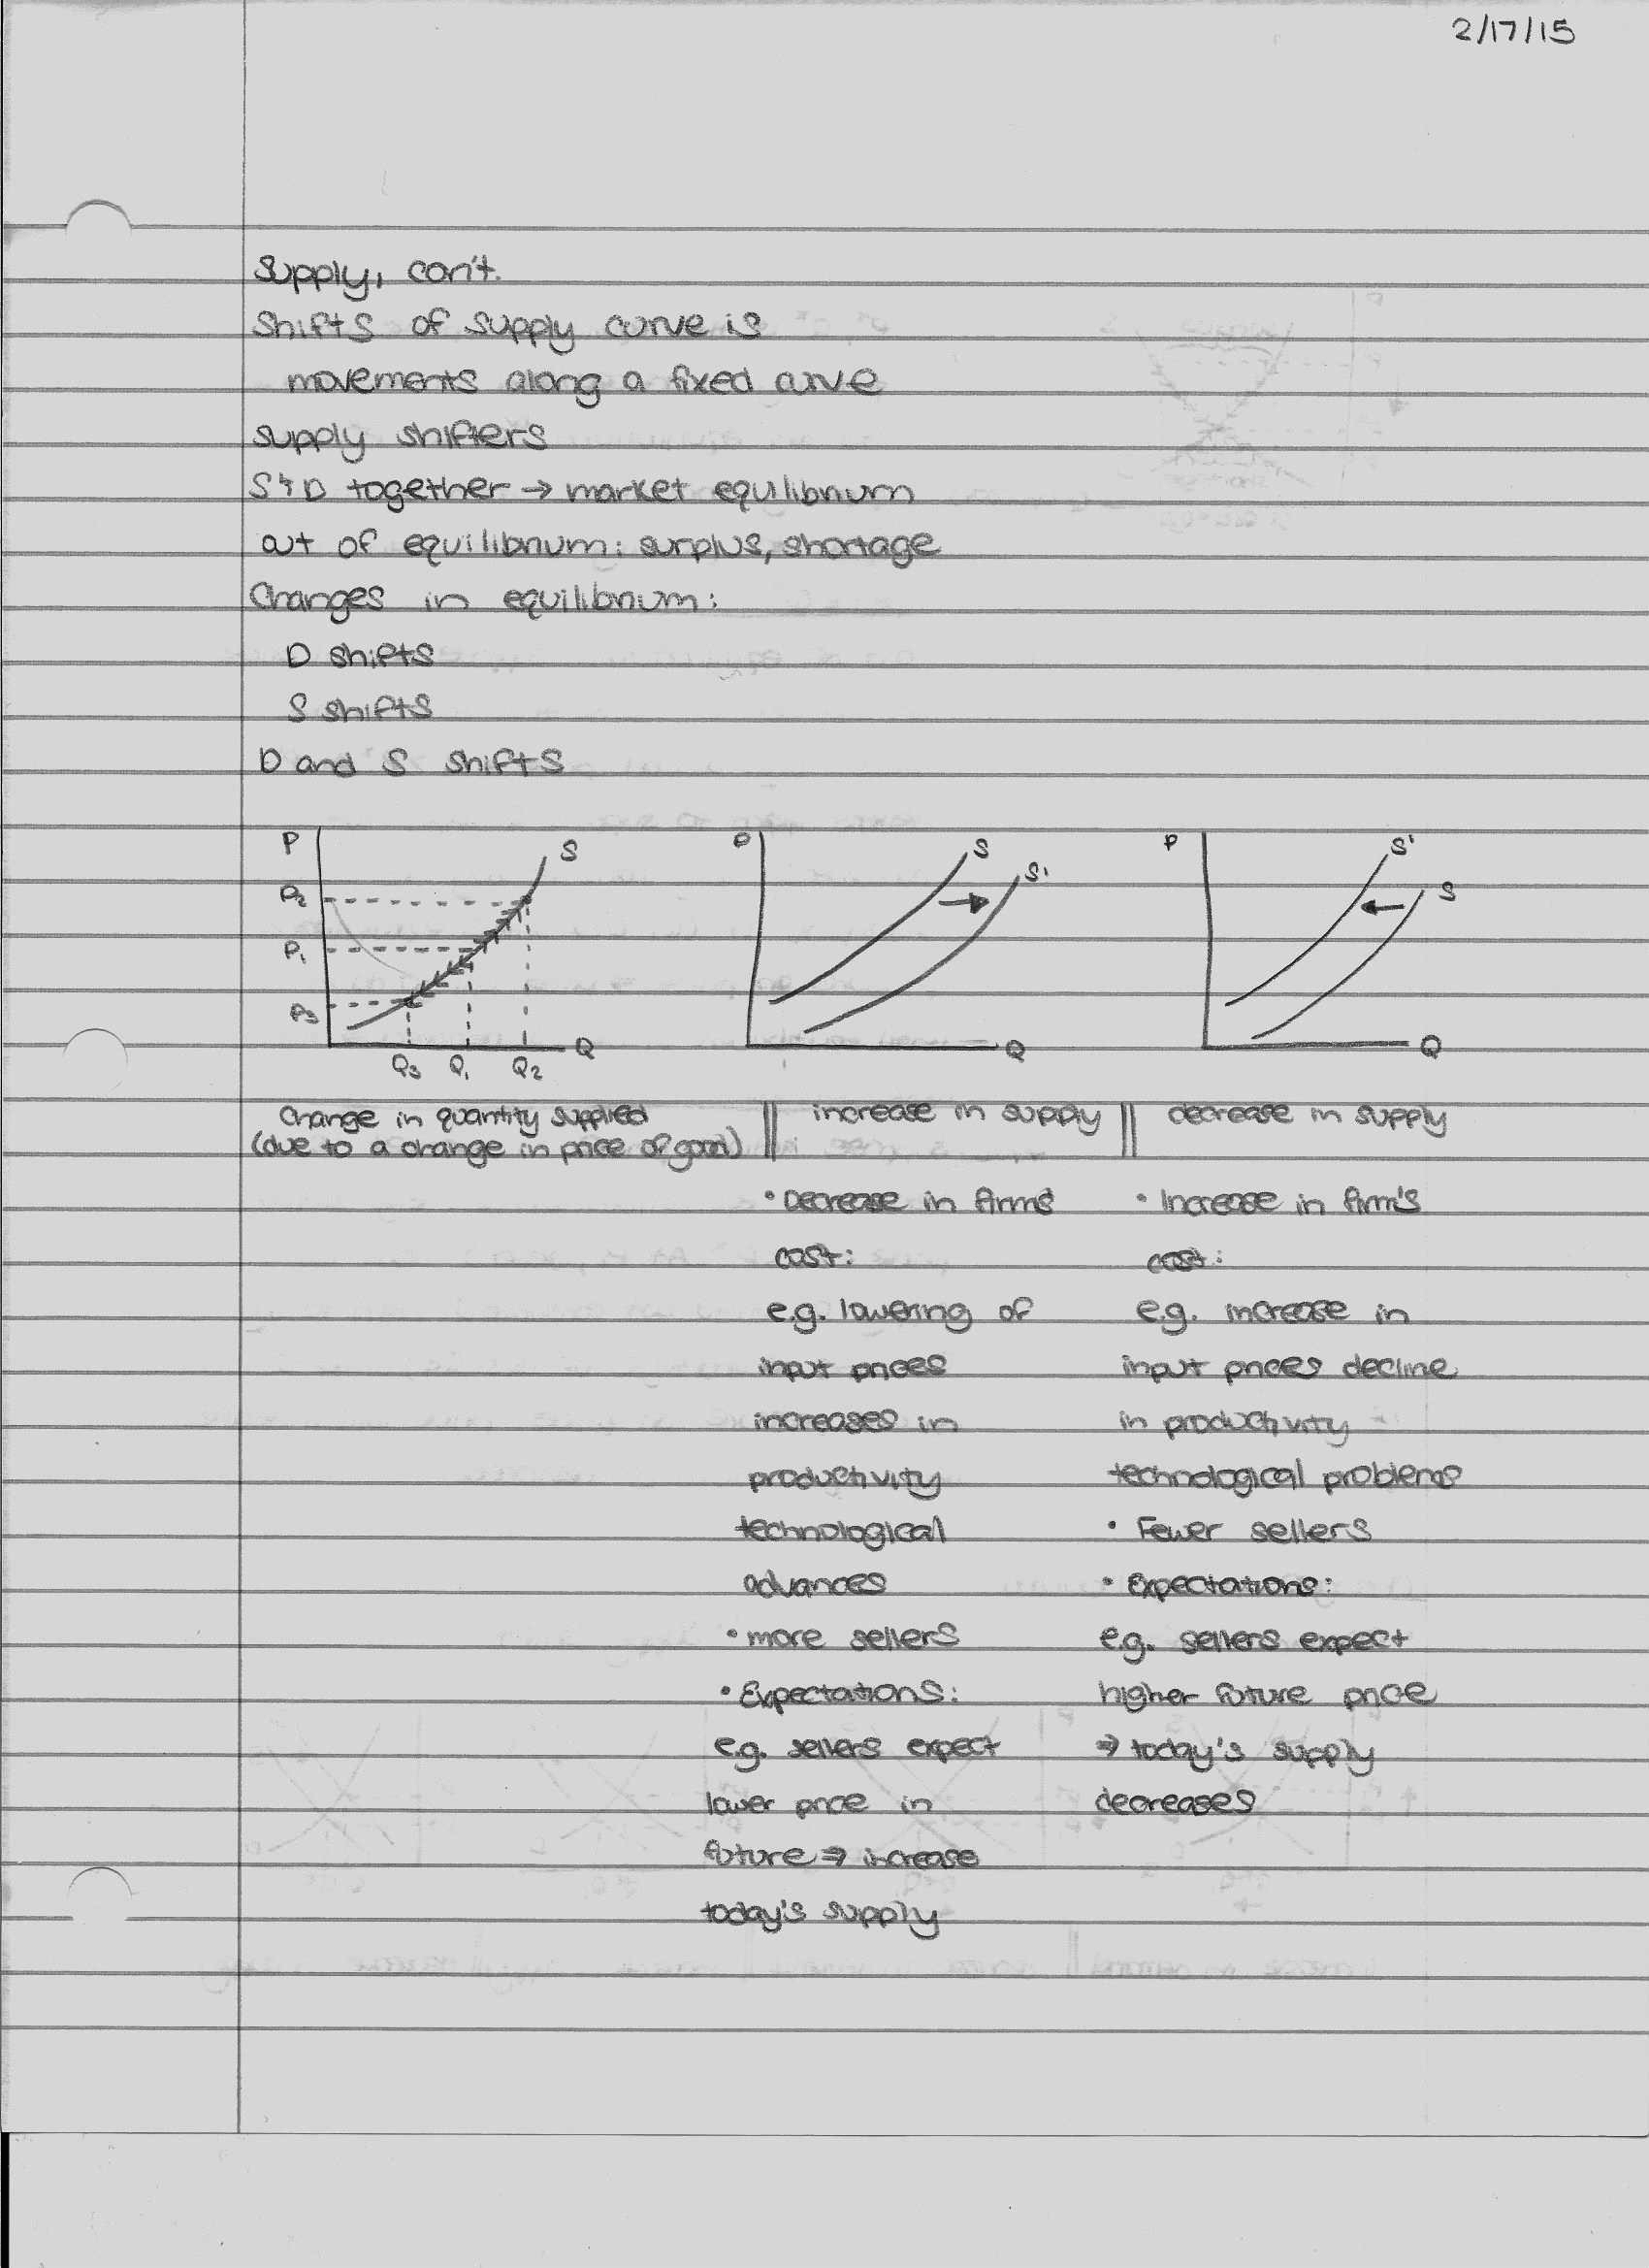 2/17/15
Supply, con't.
Shifts of supply curve is
movements along a fixed curve
supply shifters
S & D together → market equilibrium
out of equilibrium: surplus, shortage
Changes in equilibrium:
D shifts
S shifts
D and S shifts
P S
P2
P1
P3
Q
Q3 Q1 Q2
P S S1
Q
P S' S
Q
Change in quantity supplied
(due to a change in price of good)
increase in supply
decrease in supply
• Decrease in firms
cost:
e.g. lowering of
input prices
increases in
productivity
technological
advances
• more sellers
• Expectations:
e.g. sellers expect
lower price in
future ⇒ increase
today's supply
• Increase in firm's
cost:
e.g. increase in
input prices decline
in productivity
technological problems
• Fewer sellers
• Expectations:
e.g. sellers expect
higher future price
⇒ today's supply
decreases